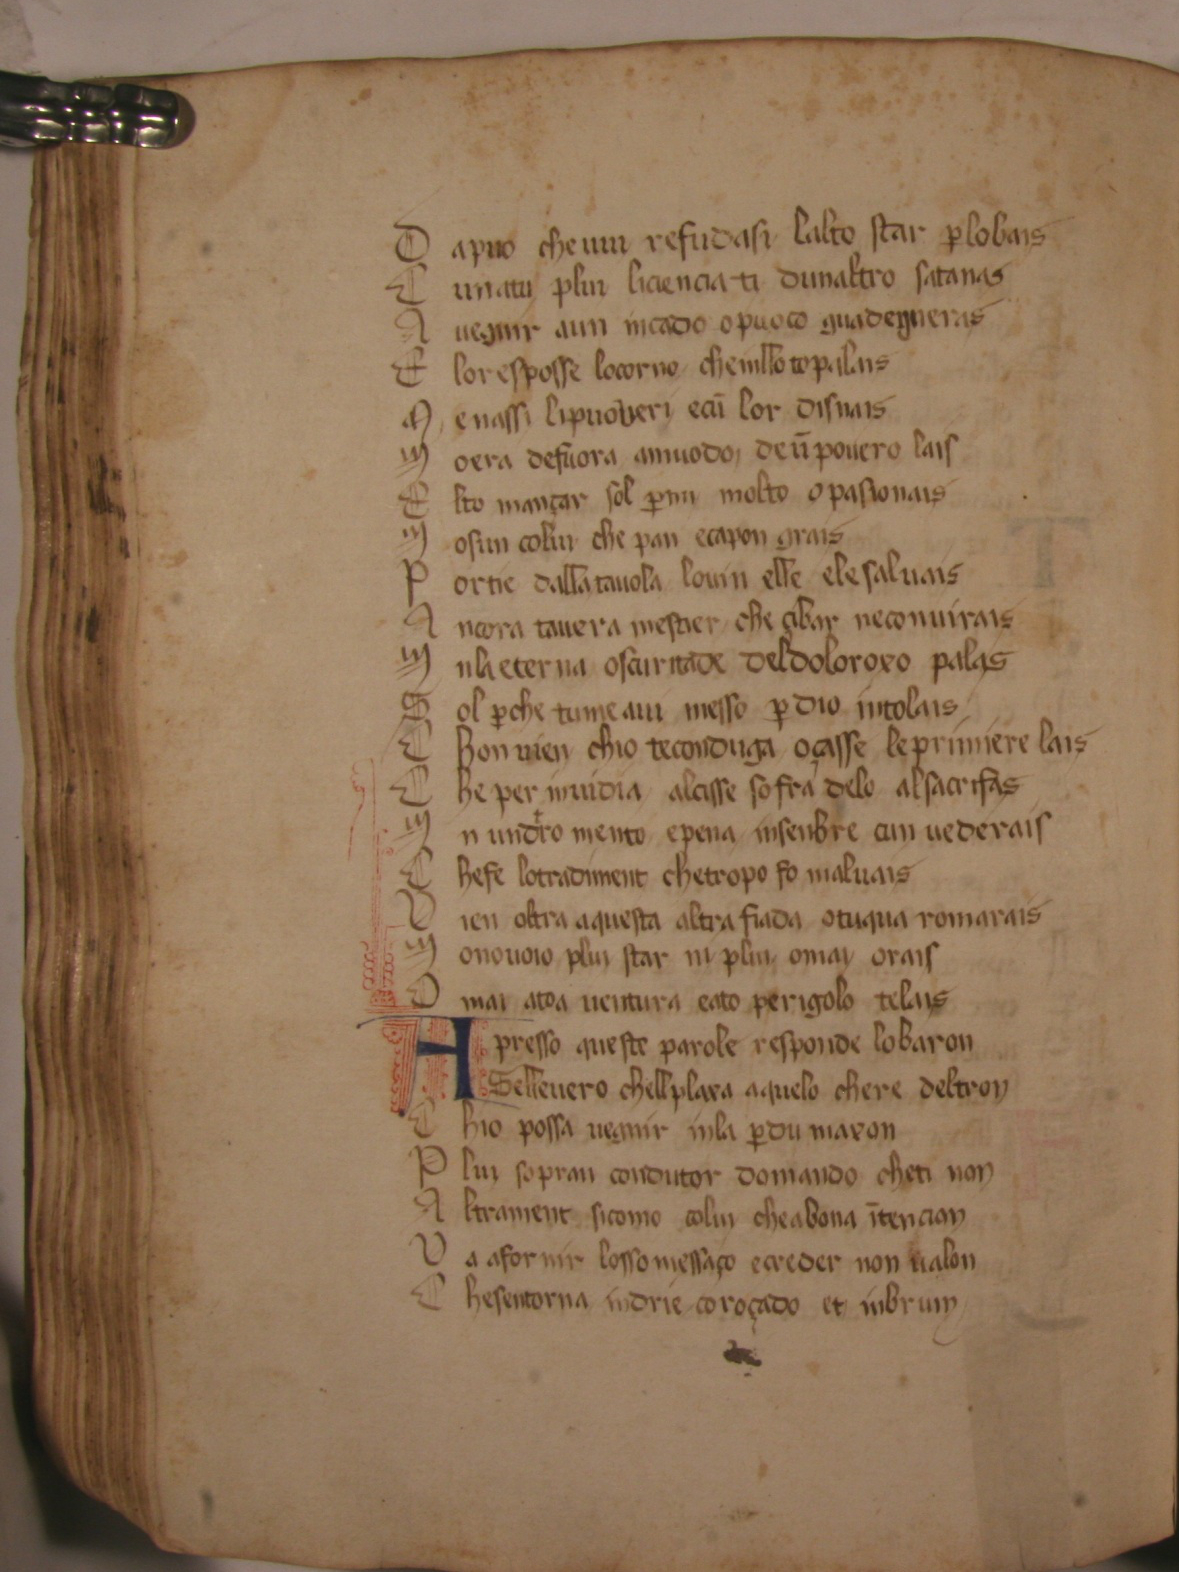 D apuo che uui refudasi lalto star ꝑ lobais
T u natu plui licienciati dunaltro satanas
A uegnir aun incado o puoco guadegneras
E lor esposse locorno che inllo to palais
M enassi li puoveri ecū lor disnais
M o era defuora amuodo de ū pouero lais
E lto mançar sol ꝑ mi molto o pasionais
M o sun colui che pan ecapon grais
P ortie dalla tauola lo uin elle ele saluais
A ncora tauera mestier che çibar ne conuirais
I nla eterna oscuritade del doloroxo palas
S ol ꝑche tu me aui messo ꝑ dio intolais
E bon uien chio te conduga oçasse le primiere lais
C he per inuidia alcisse so fradelo al sacrifas
I n un dr̄o mento epena insenbre cun uederais
C he fe lo tradiment che tropo fo maluais
V ien oltra a questa altra fiada o tu qua romarais
N o no uoio plui star ni plui omai orais
O mai atoa uentura eato perigolo telais
A presso queste parole responde lo baron
Sell e uero chell plaxa aquelo che re deltron
C hio possa uegnir inla ꝑdu maxon
P lui sopran condutor domando che ti non
A ltrament sicomo colui che a bona ītencion
V a afornir losso messaço ecreder non ualon
C he sen torna indrie coroçado et inbrun